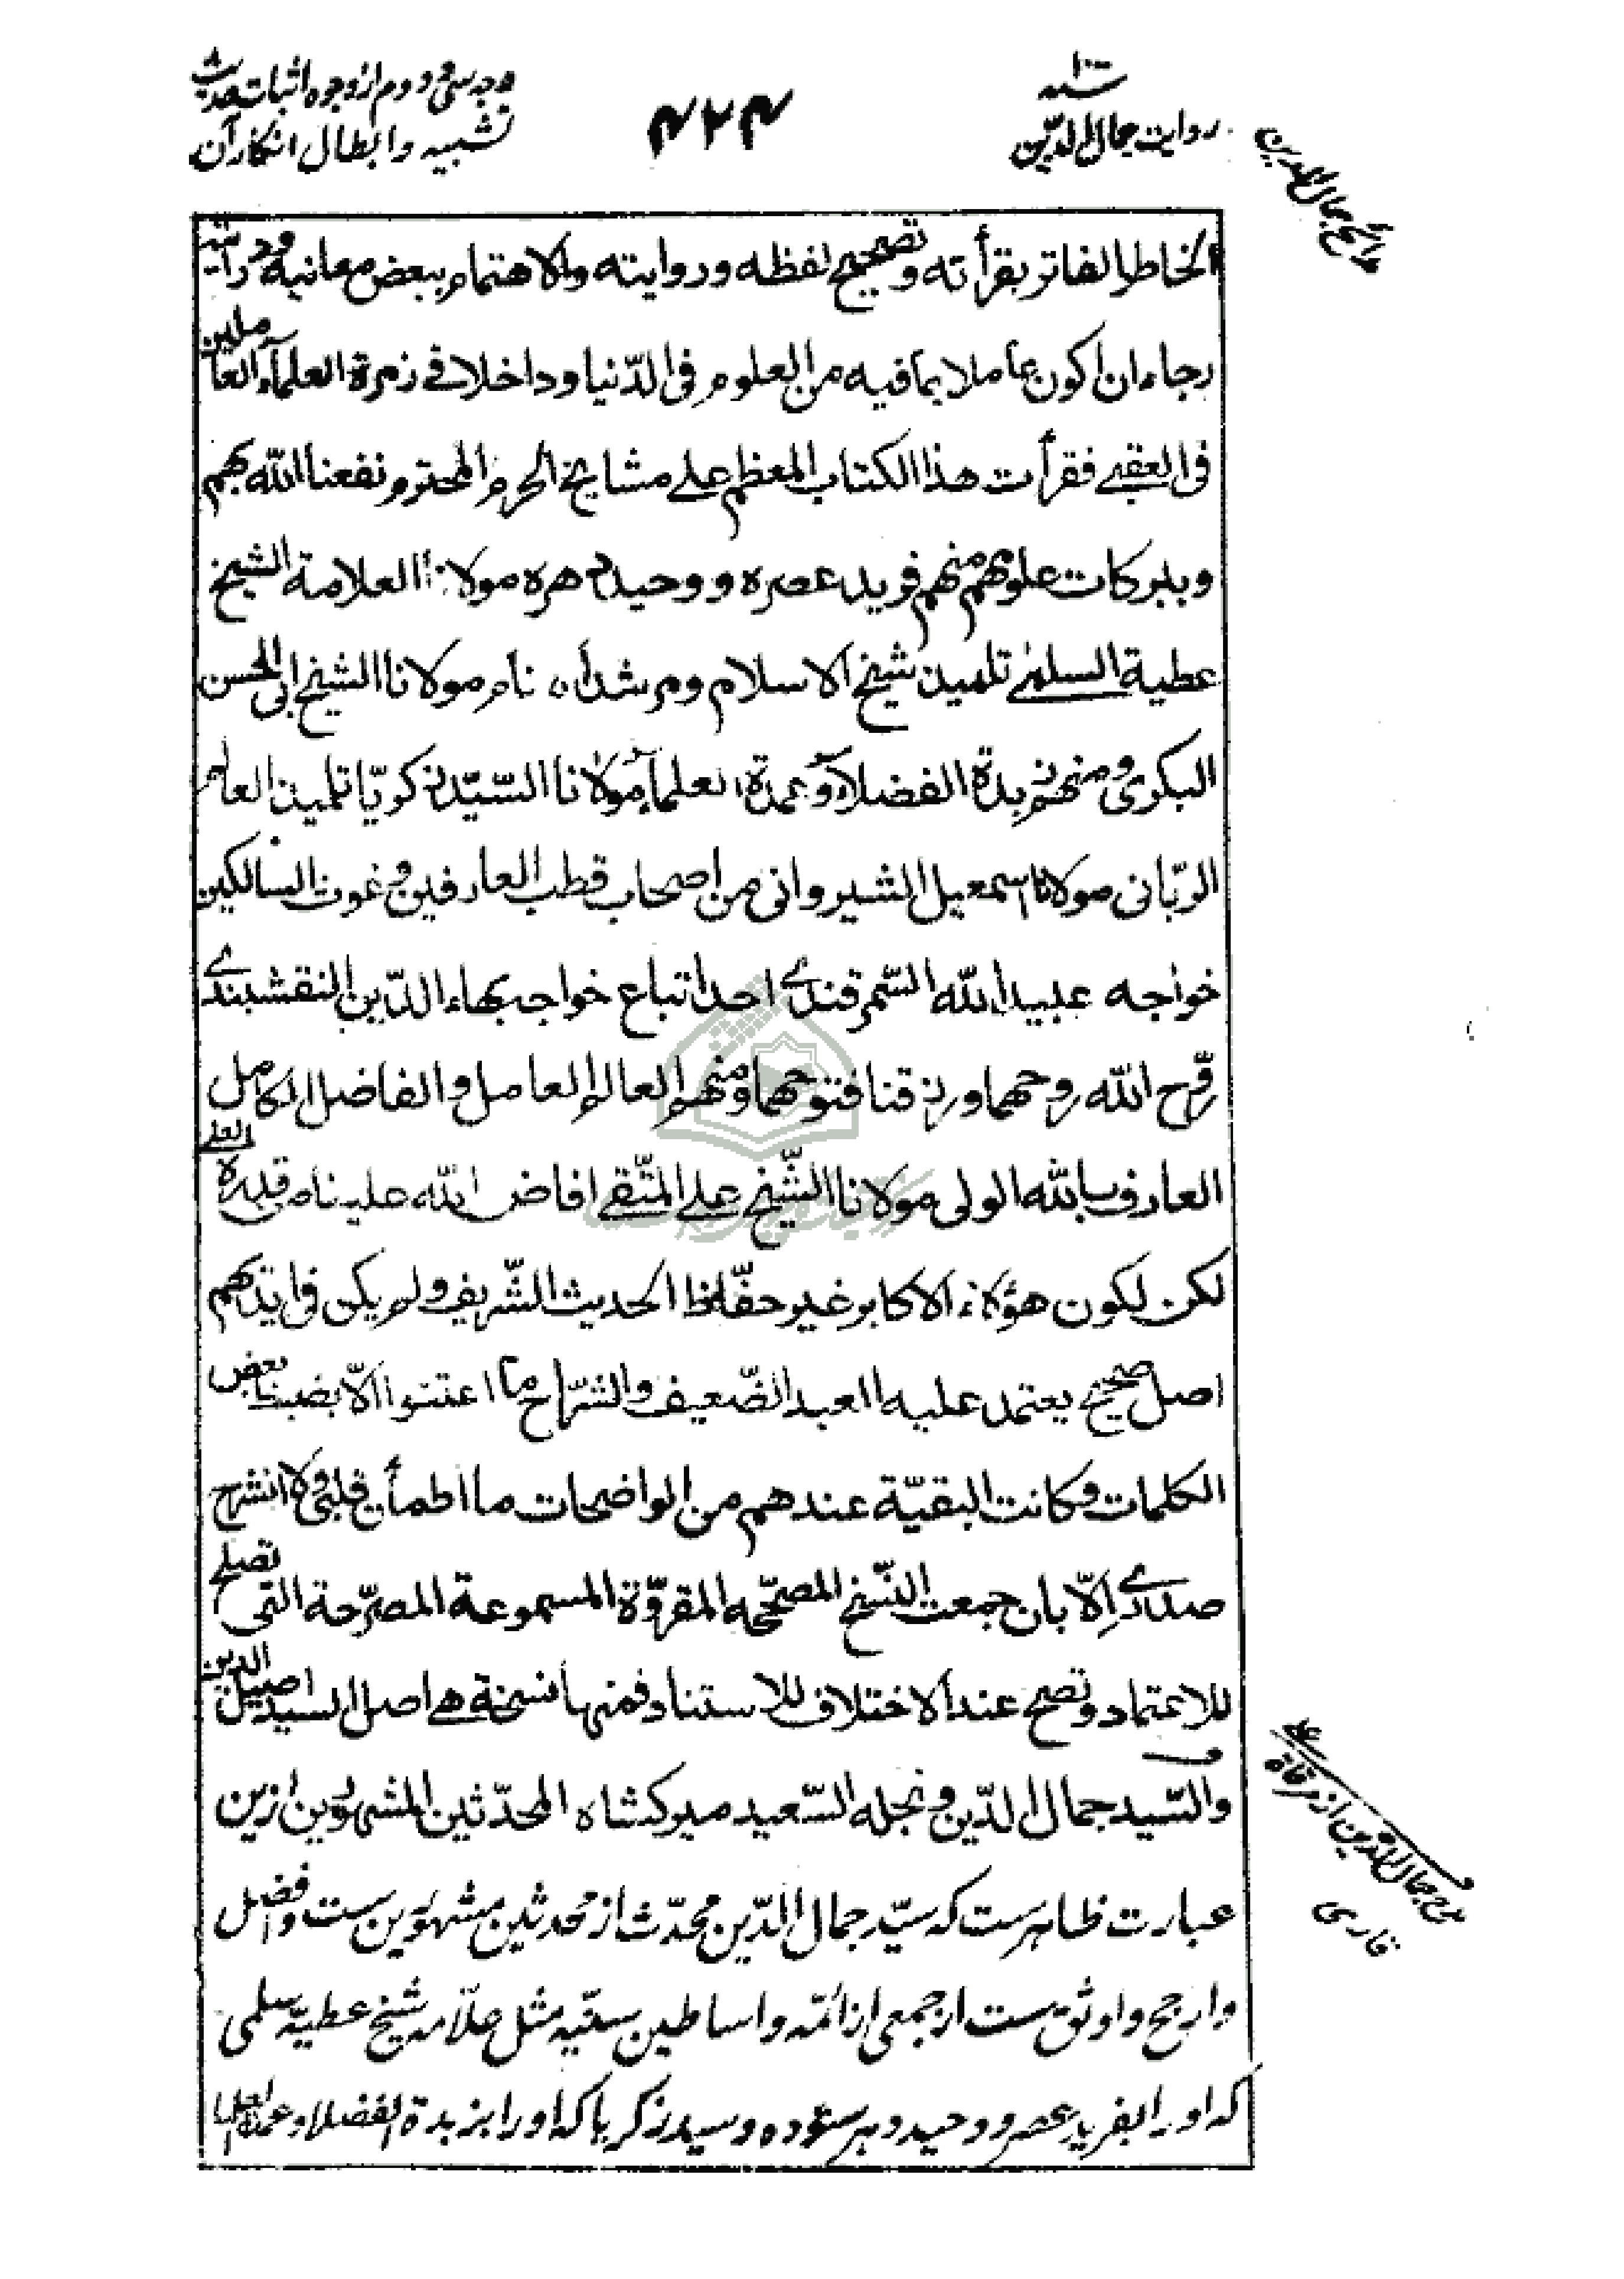 سنه ۱۰۰۰
روایت جمال الدین
۴۲۴
وجه سی و دوم از وجوه اثبات حدیث
تشبیه و ابطال انکار آن
مدائح جمال الدین
الخاطر الفاتر بقرأته وتصحیح لفظه وروایته والاهتمام ببعض معانیه ودرایته
رجاء ان اکون عاملا بما فیه من العلوم فی الدّنیا وداخلا فی زمرة العلمآء العاملین
فی العقبے فقرأت هذا الکتاب المعظم علے مشایخ الحرم المحترم نفعنا الله بهم
وببرکات علومهم منهم فرید عصره ووحید دهره مولانا العلامة الشیخ
عطیة السلمے تلمیذ شیخ الاسلام ومرشد الانام مولانا الشیخ ابی الحسن
البکری ومنهم زبدة الفضلآء وعمدة العلمآء مولانا السّیّد زکریّا تلمیذ العالم
الربّانی مولانا اسمعیل الشیروانی من اصحاب قطب العارفین وغوث السالکین
خواجه عبید الله السّمرقندے احد اتباع خواجه بهاء الدّین النقشبندے
روّح الله روحهما ورزقنا فتوحهما ومنهم العالم العامل والفاضل الکامل
العارف بالله الولی مولانا الشّیخ علے المتّقے افاض الله علینا من قدره العلی
لکن لکون هؤلاء الاکابر غیر حفّاظ الحدیث الشّریف ولم یکن فی ایدیهم
اصل صحیح یعتمد علیه العبد الضّعیف والشّراح ما اعتنوا الّا بضبط بعض
الکلمات وکانت البقیّة عندهم من الواضحات ما اطمأن قلبی ولا انشرح
صدرے اِلّا بان جمعت النّسخ المصحّحه المقروّة المسموعة المصرّحة التی تصلح
للاعتماد وتصح عند الاختلاف للاستناد فمنها نسخة هے اصل السید اصیل الدین
والسّید جمال الدّین ونجله السّعید میرکشاه المحدّثین المشهورین ازین
مدح جمال الدین از مرقاة علے
قاری
عبارت ظاهرست که سیّد جمال الدّین محدّث از محدثین مشهورین ست وافضل
وارجح واوثق ست از جمعی از ائمّه واساطین سنّیه مثل علّامه شیخ عطیّه سلمی
که او را بفرید عصر ووحید دهر ستوده وسید زکریا که او را بزبدة الفضلاء وعمدة العلما